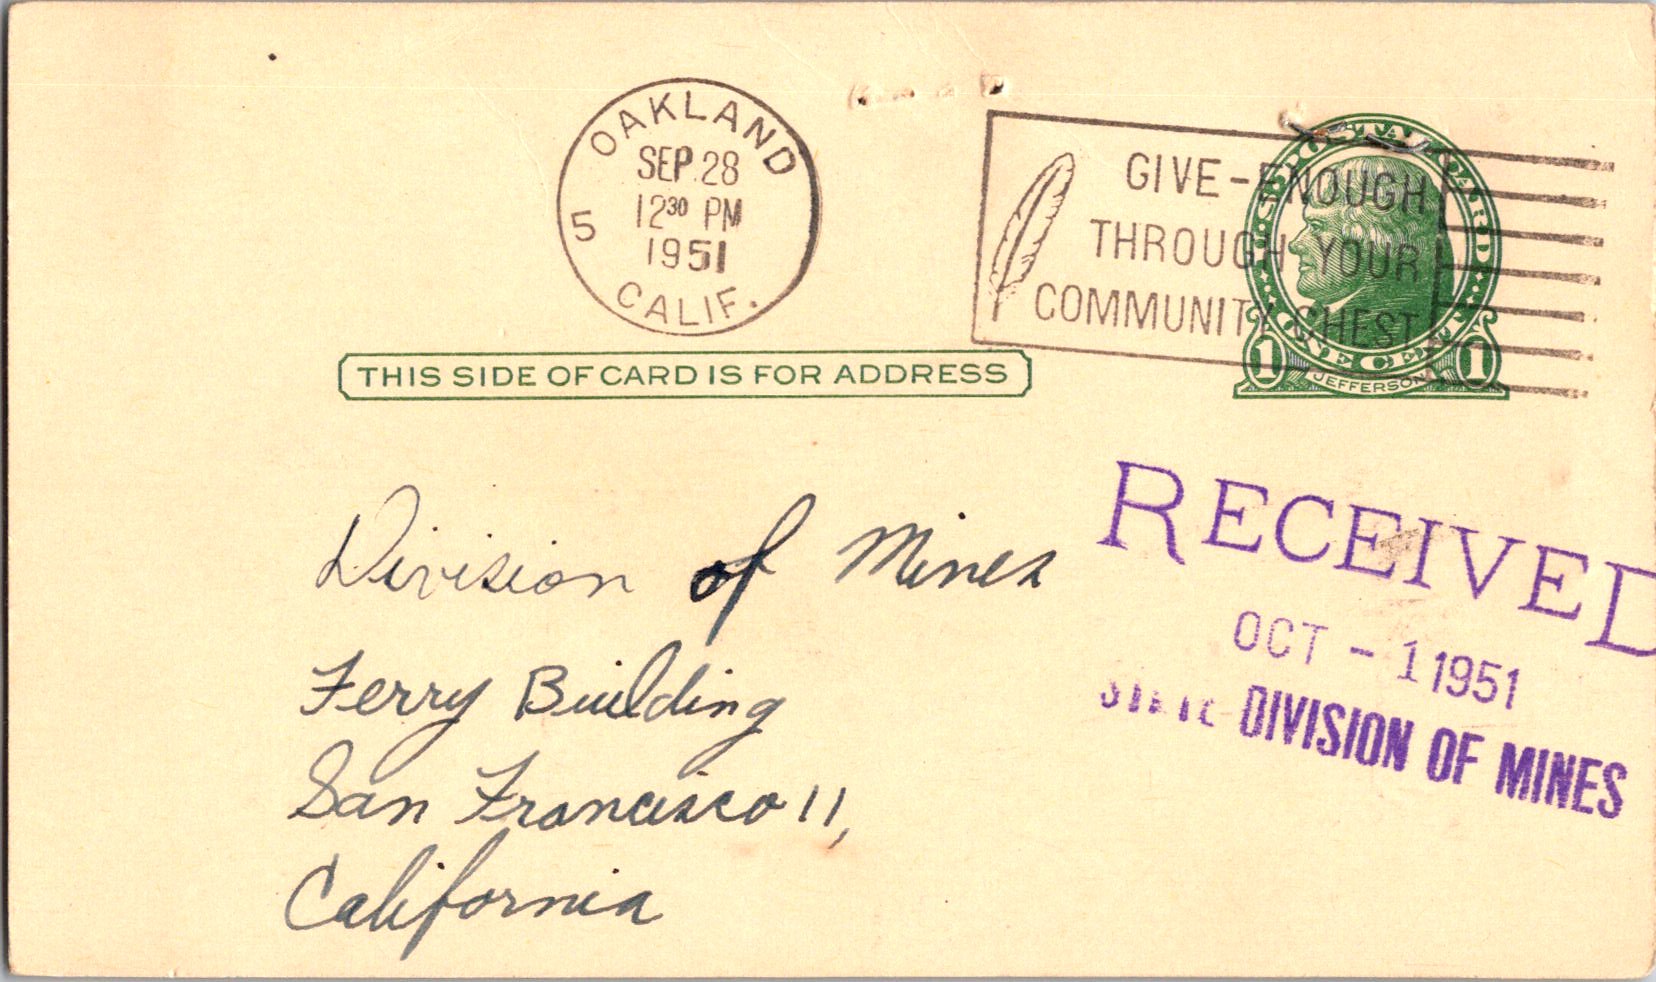 OAKLAND
SEP 28
12 30 PM
1951
5
CALIF.
GIVE-ENOUGH
THROUGH YOUR
COMMUNITY CHEST
U.S. POSTAL CARD
ONE CENT
1 JEFFERSON 1
THIS SIDE OF CARD IS FOR ADDRESS
Division of Mines
Ferry Building
San Francisco 11,
California
RECEIVED
OCT - 1 1951
STATE DIVISION OF MINES